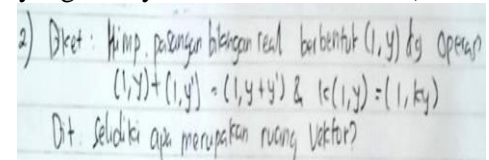 2) Diket : Himp. pasangan bilangan real berbentuk (1, y) dg operasi
(1,y) + (1,y') = (1, y+y') & k(1,y) = (1, ky)
Dit. Selidiki apa merupakan ruang Vektor?